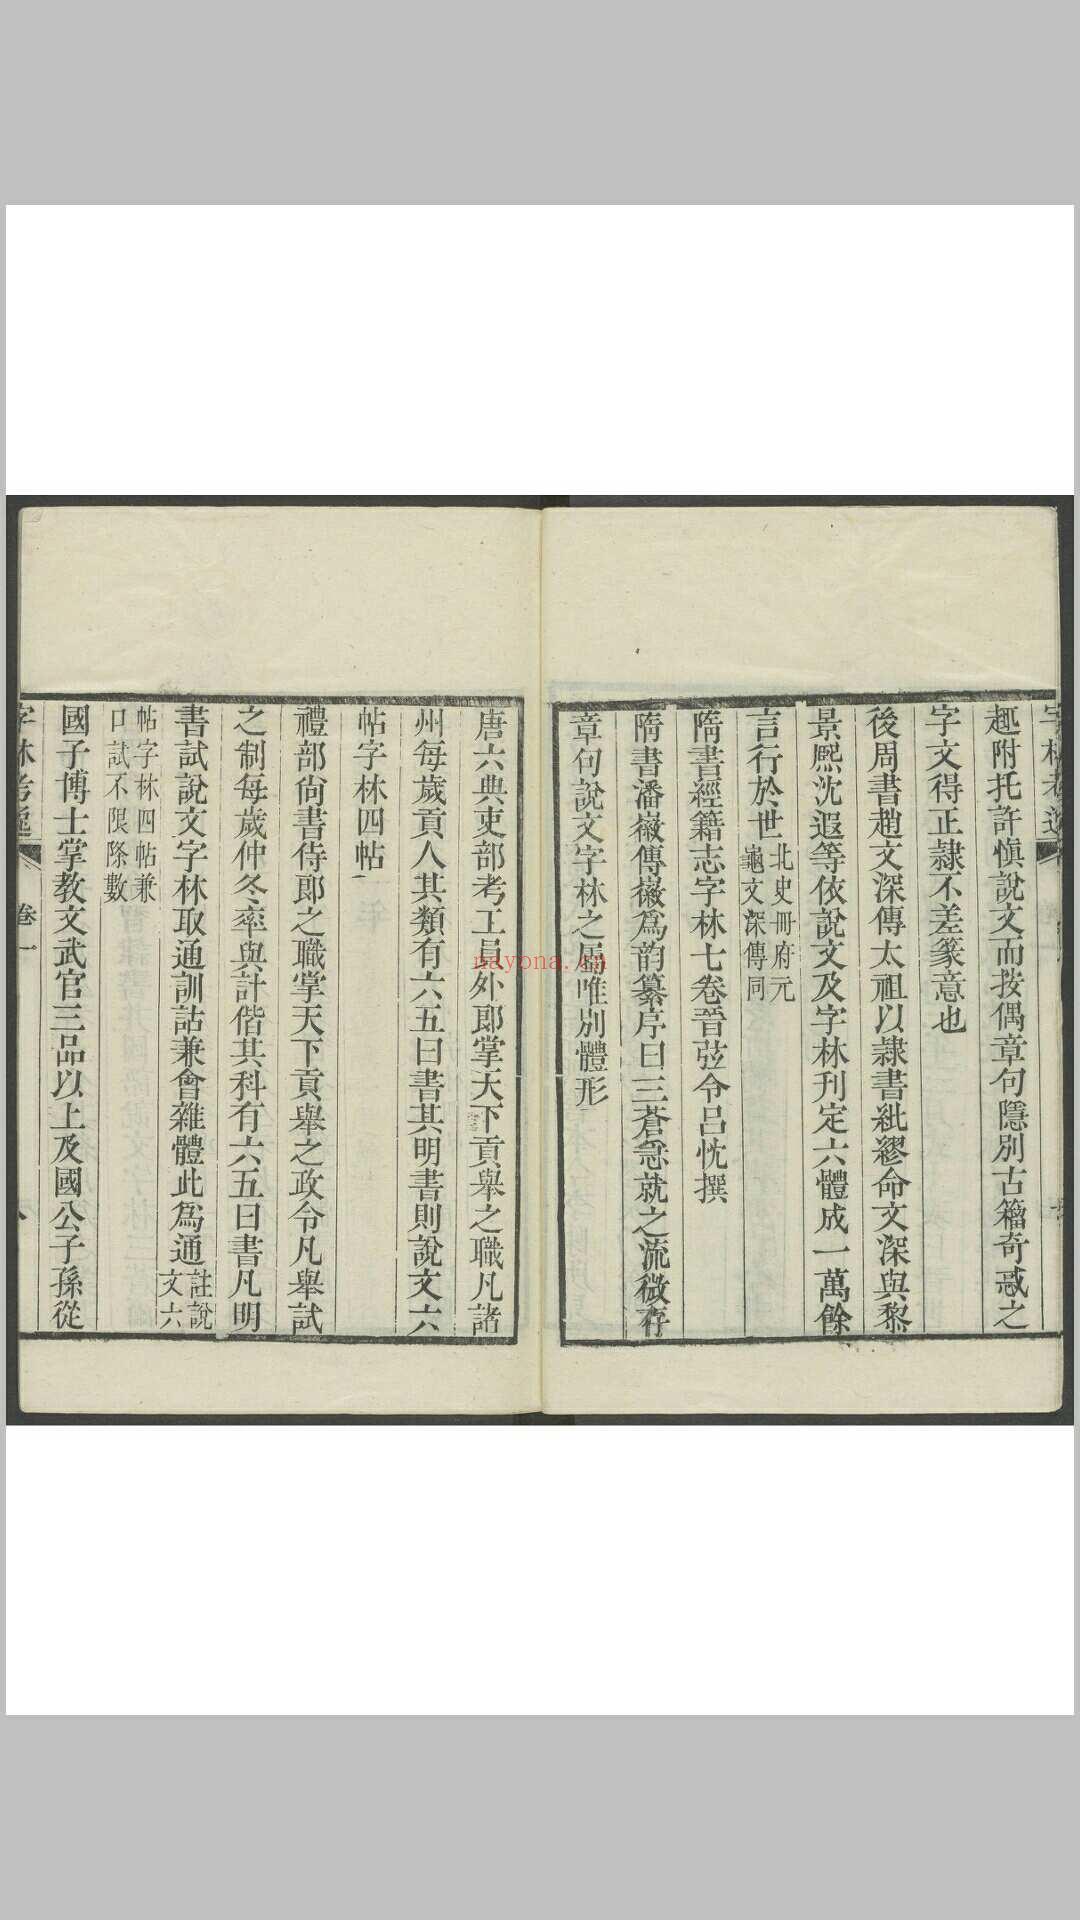 字林考逸
趣附托許愼說文而按偶章句隱別古籀奇惑之
字文得正隷不差篆意也
後周書趙文深傳太祖以隷書紕繆命文深與黎
景熙沈遐等依說文及字林刊定六體成一萬餘
言行於世北史冊府元
龜文深傳同
隋書經籍志字林七卷晉弦令呂忱撰
隋書潘徽傳徽爲韵纂序曰三蒼急就之流微存
章句說文字林之屬唯別體形
唐六典吏部考工員外郞掌天下貢舉之職凡諸
州每歲貢人其類有六五曰書其明書則說文六
帖字林四帖
禮部尙書侍郞之職掌天下貢舉之政令凡舉試
之制每歲仲冬率與計偕其科有六五曰書凡明
書試說文字林取通訓詁兼會雜體此爲通註說
文六
帖字林四帖兼
口試不限條數
國子博士掌教文武官三品以上及國公子孫從
字林考逸 卷一 八
nayona.cn